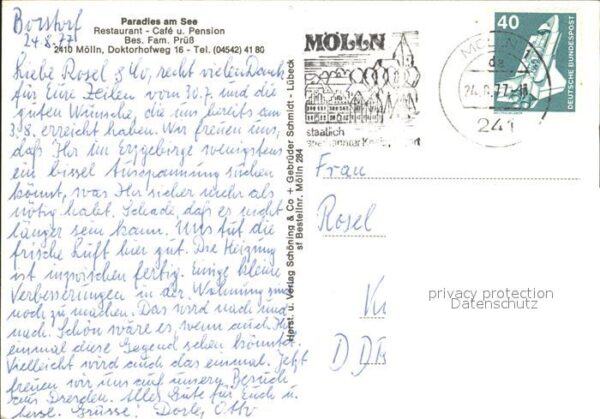 Borstorf
24.8.77
Paradies am See
Restaurant - Café u. Pension
Bes. Fam. Prüß
2410 Mölln, Doktorhofweg 16 - Tel. (04542) 41 80
Liebe Rosel & Ko, recht vielen Dank
für Eure Zeilen vom 30.7. und die
guten Wünsche, die uns bereits am
3.8. erreicht haben. Wir freuen uns,
daß Ihr im Erzgebirge wenigstens
ein bissel Ausspannung suchen
könnt, was Ihr sicher mehr als
nötig habt. Schade, daß es nicht
länger sein kann. Uns tut die
frische Luft hier gut. Die Heizung
ist inzwischen fertig. Einige kleine
Verbesserungen in der Wohnung sind
noch zu machen. Das wird nach und
nach. Schön wäre es, wenn auch Ihr
einmal diese Gegend sehen könntet.
Vielleicht wird auch das einmal. Jetzt
freuen wir uns auf unsern Besuch
aus Dresden. Alles Gute für Euch u.
herzl. Grüsse. Dorle, Otto
Horst. u. Verlag Schöning & Co + Gebrüder Schmidt - Lübeck
sf Bestellnr. Mölln 284
MÖLLN
staatlich
MÖLLN
da
24.8.77-
241
40
DEUTSCHE BUNDESPOST
Frau
Rosel
DDR
privacy protection
Datenschutz